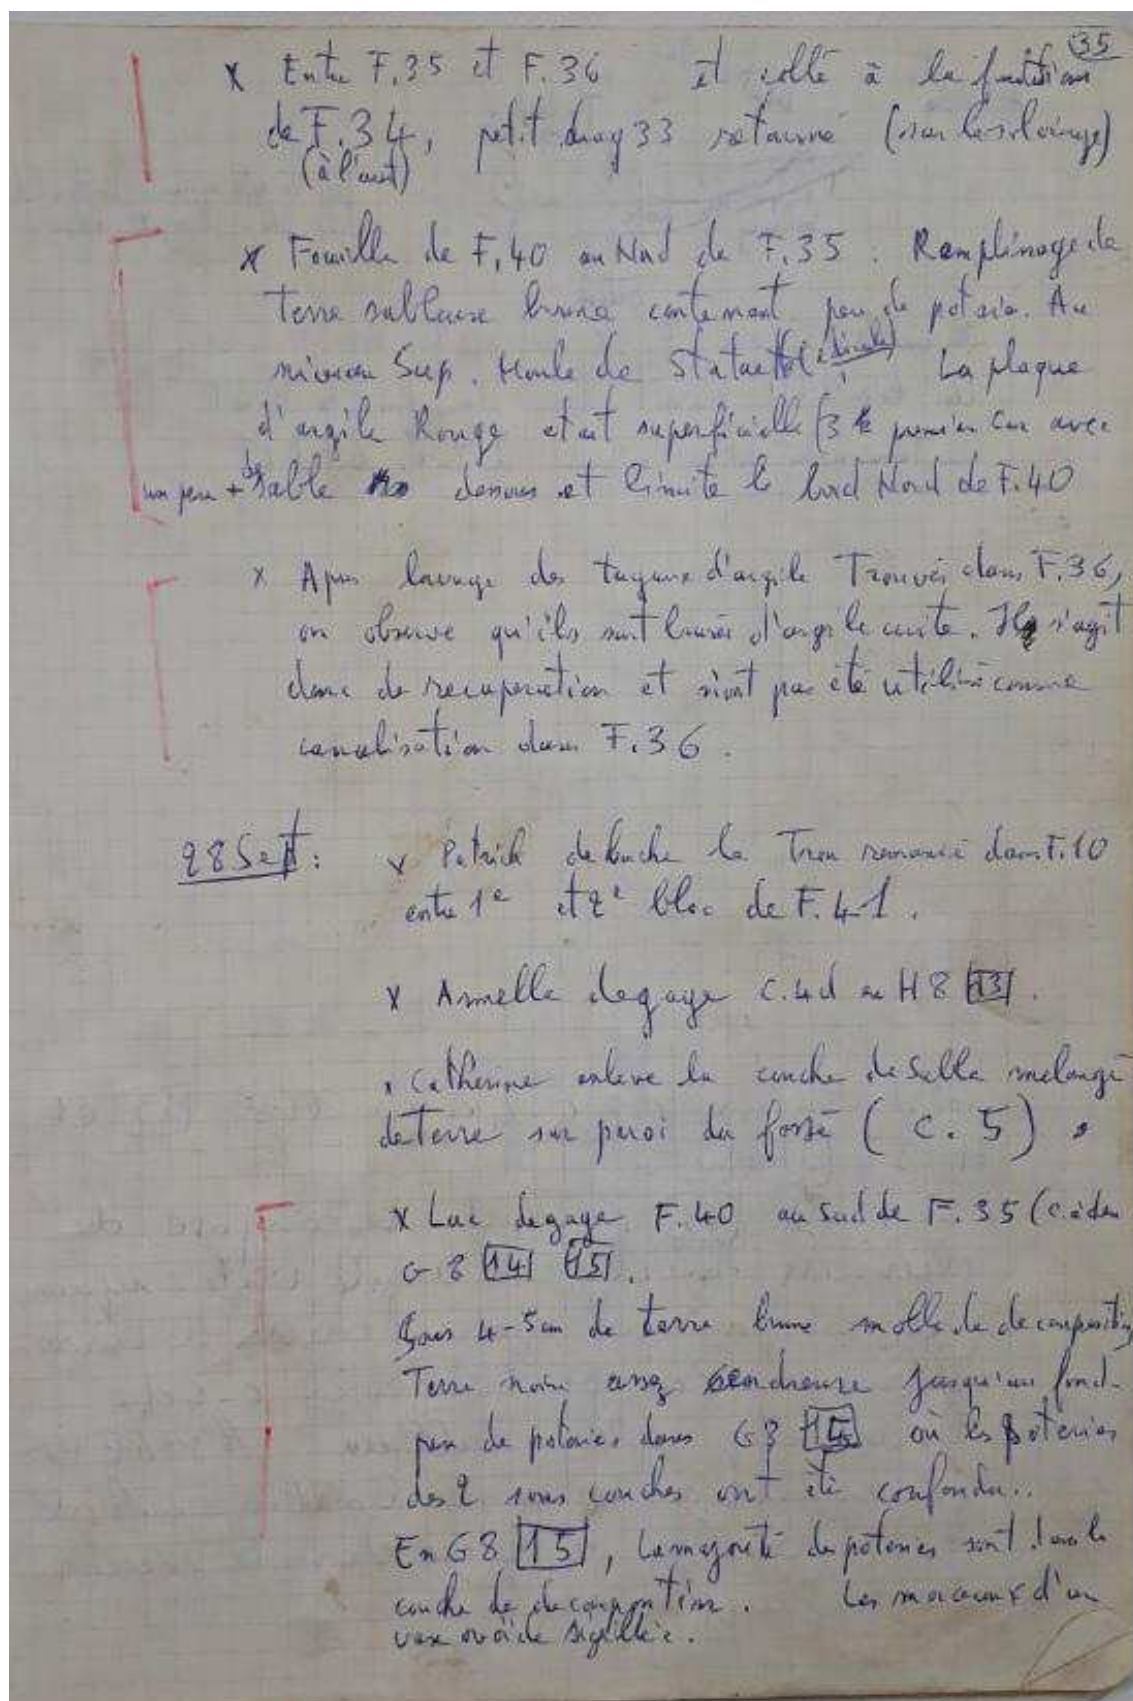 35
x Entre F.35 et F.36 et collé à la fondation
de F.34, petit drag 33 retourné (sur
(à l'ouest)
x Fouille de F.40 au Nord de F.35. Remplissage de
terre sableuse brune contenant peu de poterie. Au
niveau Sup. Moule de Statuette La plaque
d'argile Rouge etait superficielle (3 premier cm avec
un peu + de sable dessous et limite le bord Nord de F.40
x Apres lavage des tuyaux d'argile Trouvés dans F.36,
on observe qu'ils sont d'argile cuite. Il s'agit
donc de recuperation et n'ont pas été utilisé comme
canalisation dans F.36.
28 Sept: x Patrick debouche le Trou remanié dans F.10
entre 1e et 2e bloc de F.41.
x Armelle degage C.4d en H8 13.
x Catherine enleve la couche de Sable melangé
de Terre sur paroi du fossé (C.5).
x Luc degage F.40 au Sud de F.35 (c.à d en
G8 14 15.
Sous 4-5cm de terre brune molle de decomposition
Terre noire assez cendreuse jusqu'au fond.
peu de poteries dans G8 où les poteries
des 2 sous couches ont été confondu..
En G8 15, La majorité des poteries sont dans la
couche de decomposition. Les morceaux d'un
vase ovoïde sigillée.